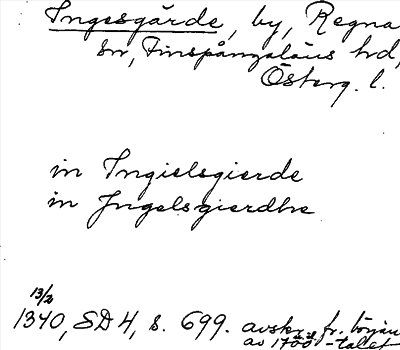 Ingesgärde, by, Regna
sn, Finspångaläns hd,
Österg. l.
in Ingielsgierde
in Jngelsgierdhe
13/2
1340, SD 4, s. 699. avskr. fr. början
av 1700-talet